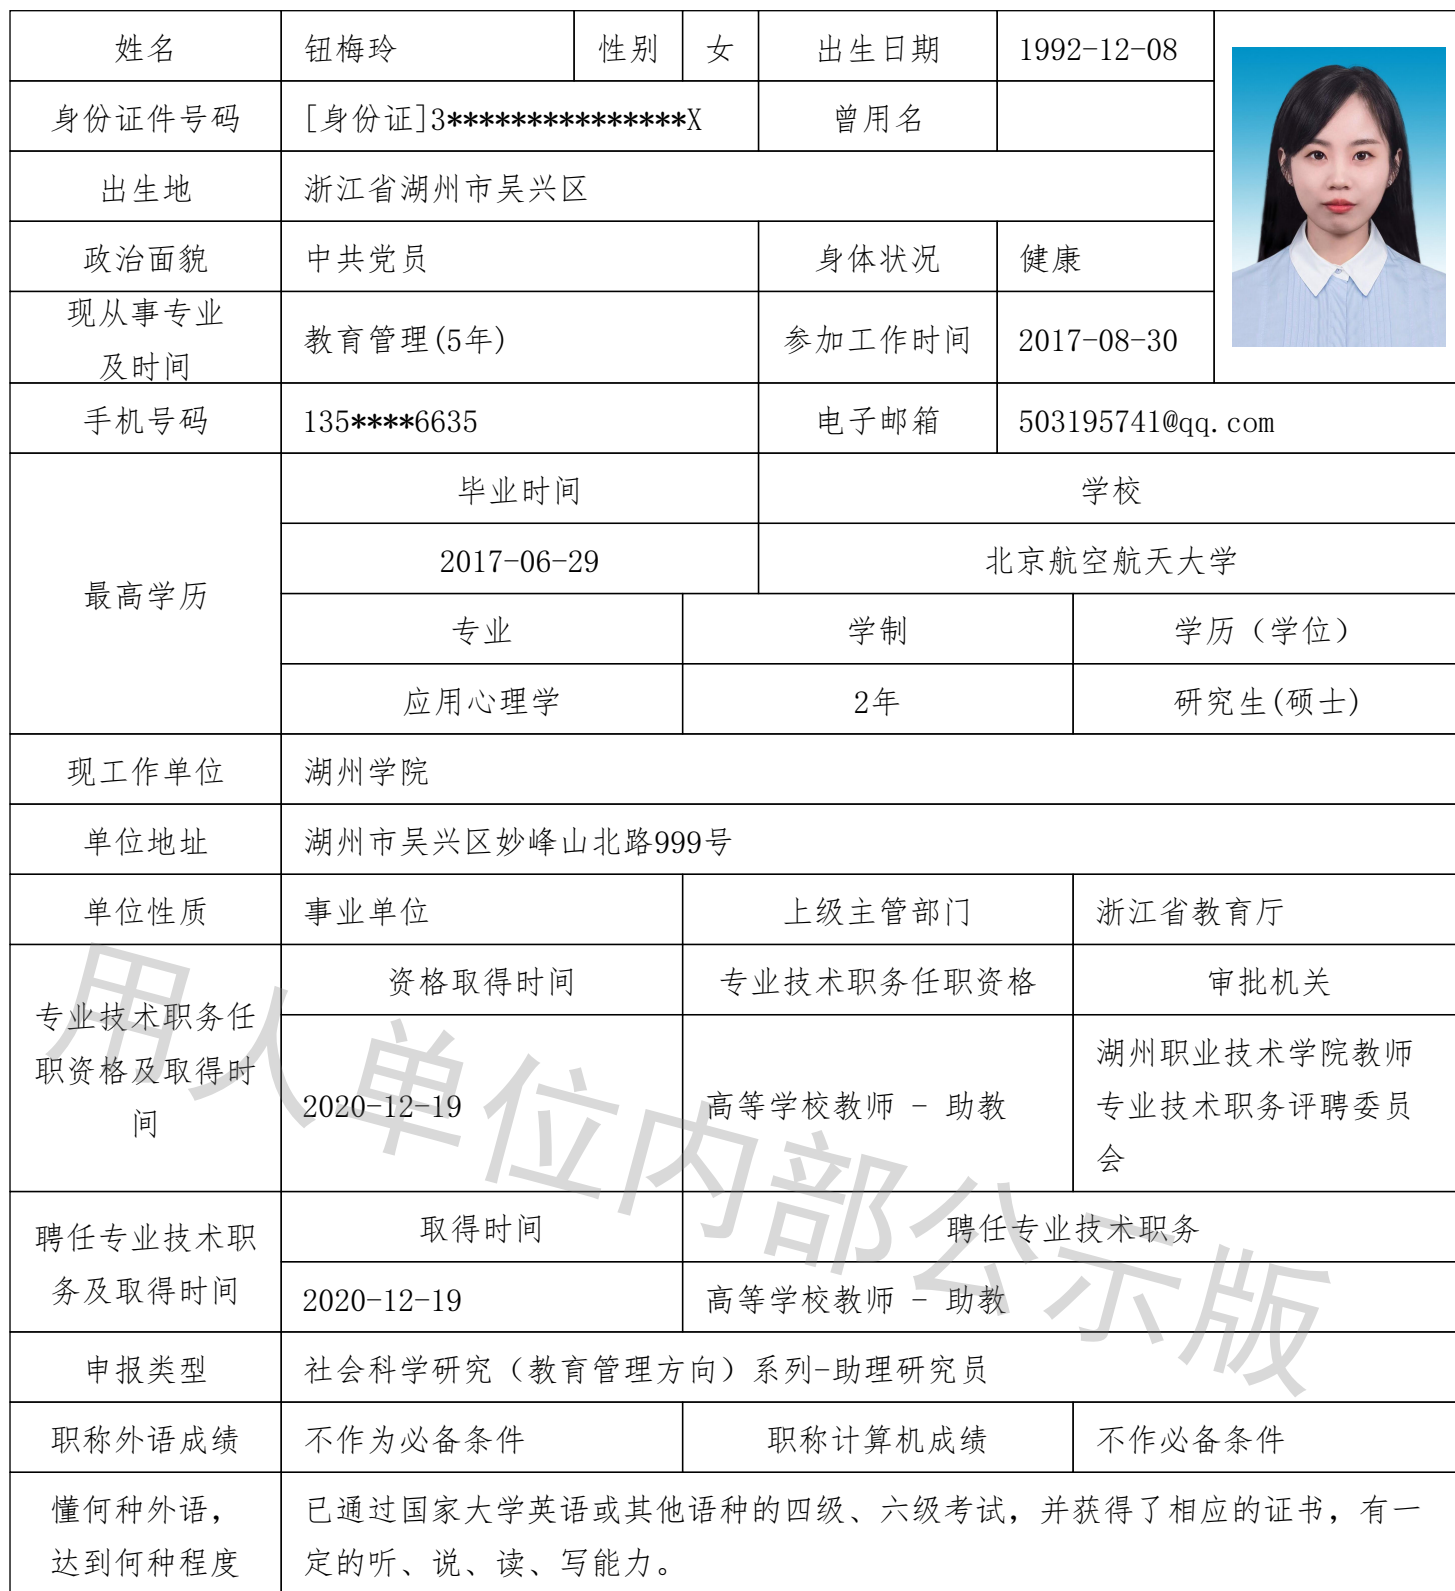 姓名 钮梅玲 性别 女 出生日期 1992-12-08
身份证件号码 [身份证]3***************X 曾用名
出生地 浙江省湖州市吴兴区
政治面貌 中共党员 身体状况 健康
现从事专业
及时间 教育管理(5年) 参加工作时间 2017-08-30
手机号码 135****6635 电子邮箱 503195741@qq.com
最高学历
毕业时间 学校
2017-06-29 北京航空航天大学
专业 学制 学历（学位）
应用心理学 2年 研究生(硕士)
现工作单位 湖州学院
单位地址 湖州市吴兴区妙峰山北路999号
单位性质 事业单位 上级主管部门 浙江省教育厅
专业技术职务任
职资格及取得时
间
资格取得时间 专业技术职务任职资格 审批机关
2020-12-19 高等学校教师 - 助教
湖州职业技术学院教师
专业技术职务评聘委员
会
聘任专业技术职
务及取得时间
取得时间 聘任专业技术职务
2020-12-19 高等学校教师 - 助教
申报类型 社会科学研究（教育管理方向）系列-助理研究员
职称外语成绩 不作为必备条件 职称计算机成绩 不作必备条件
懂何种外语，
达到何种程度
已通过国家大学英语或其他语种的四级、六级考试，并获得了相应的证书，有一
定的听、说、读、写能力。
用人单位内部公示版